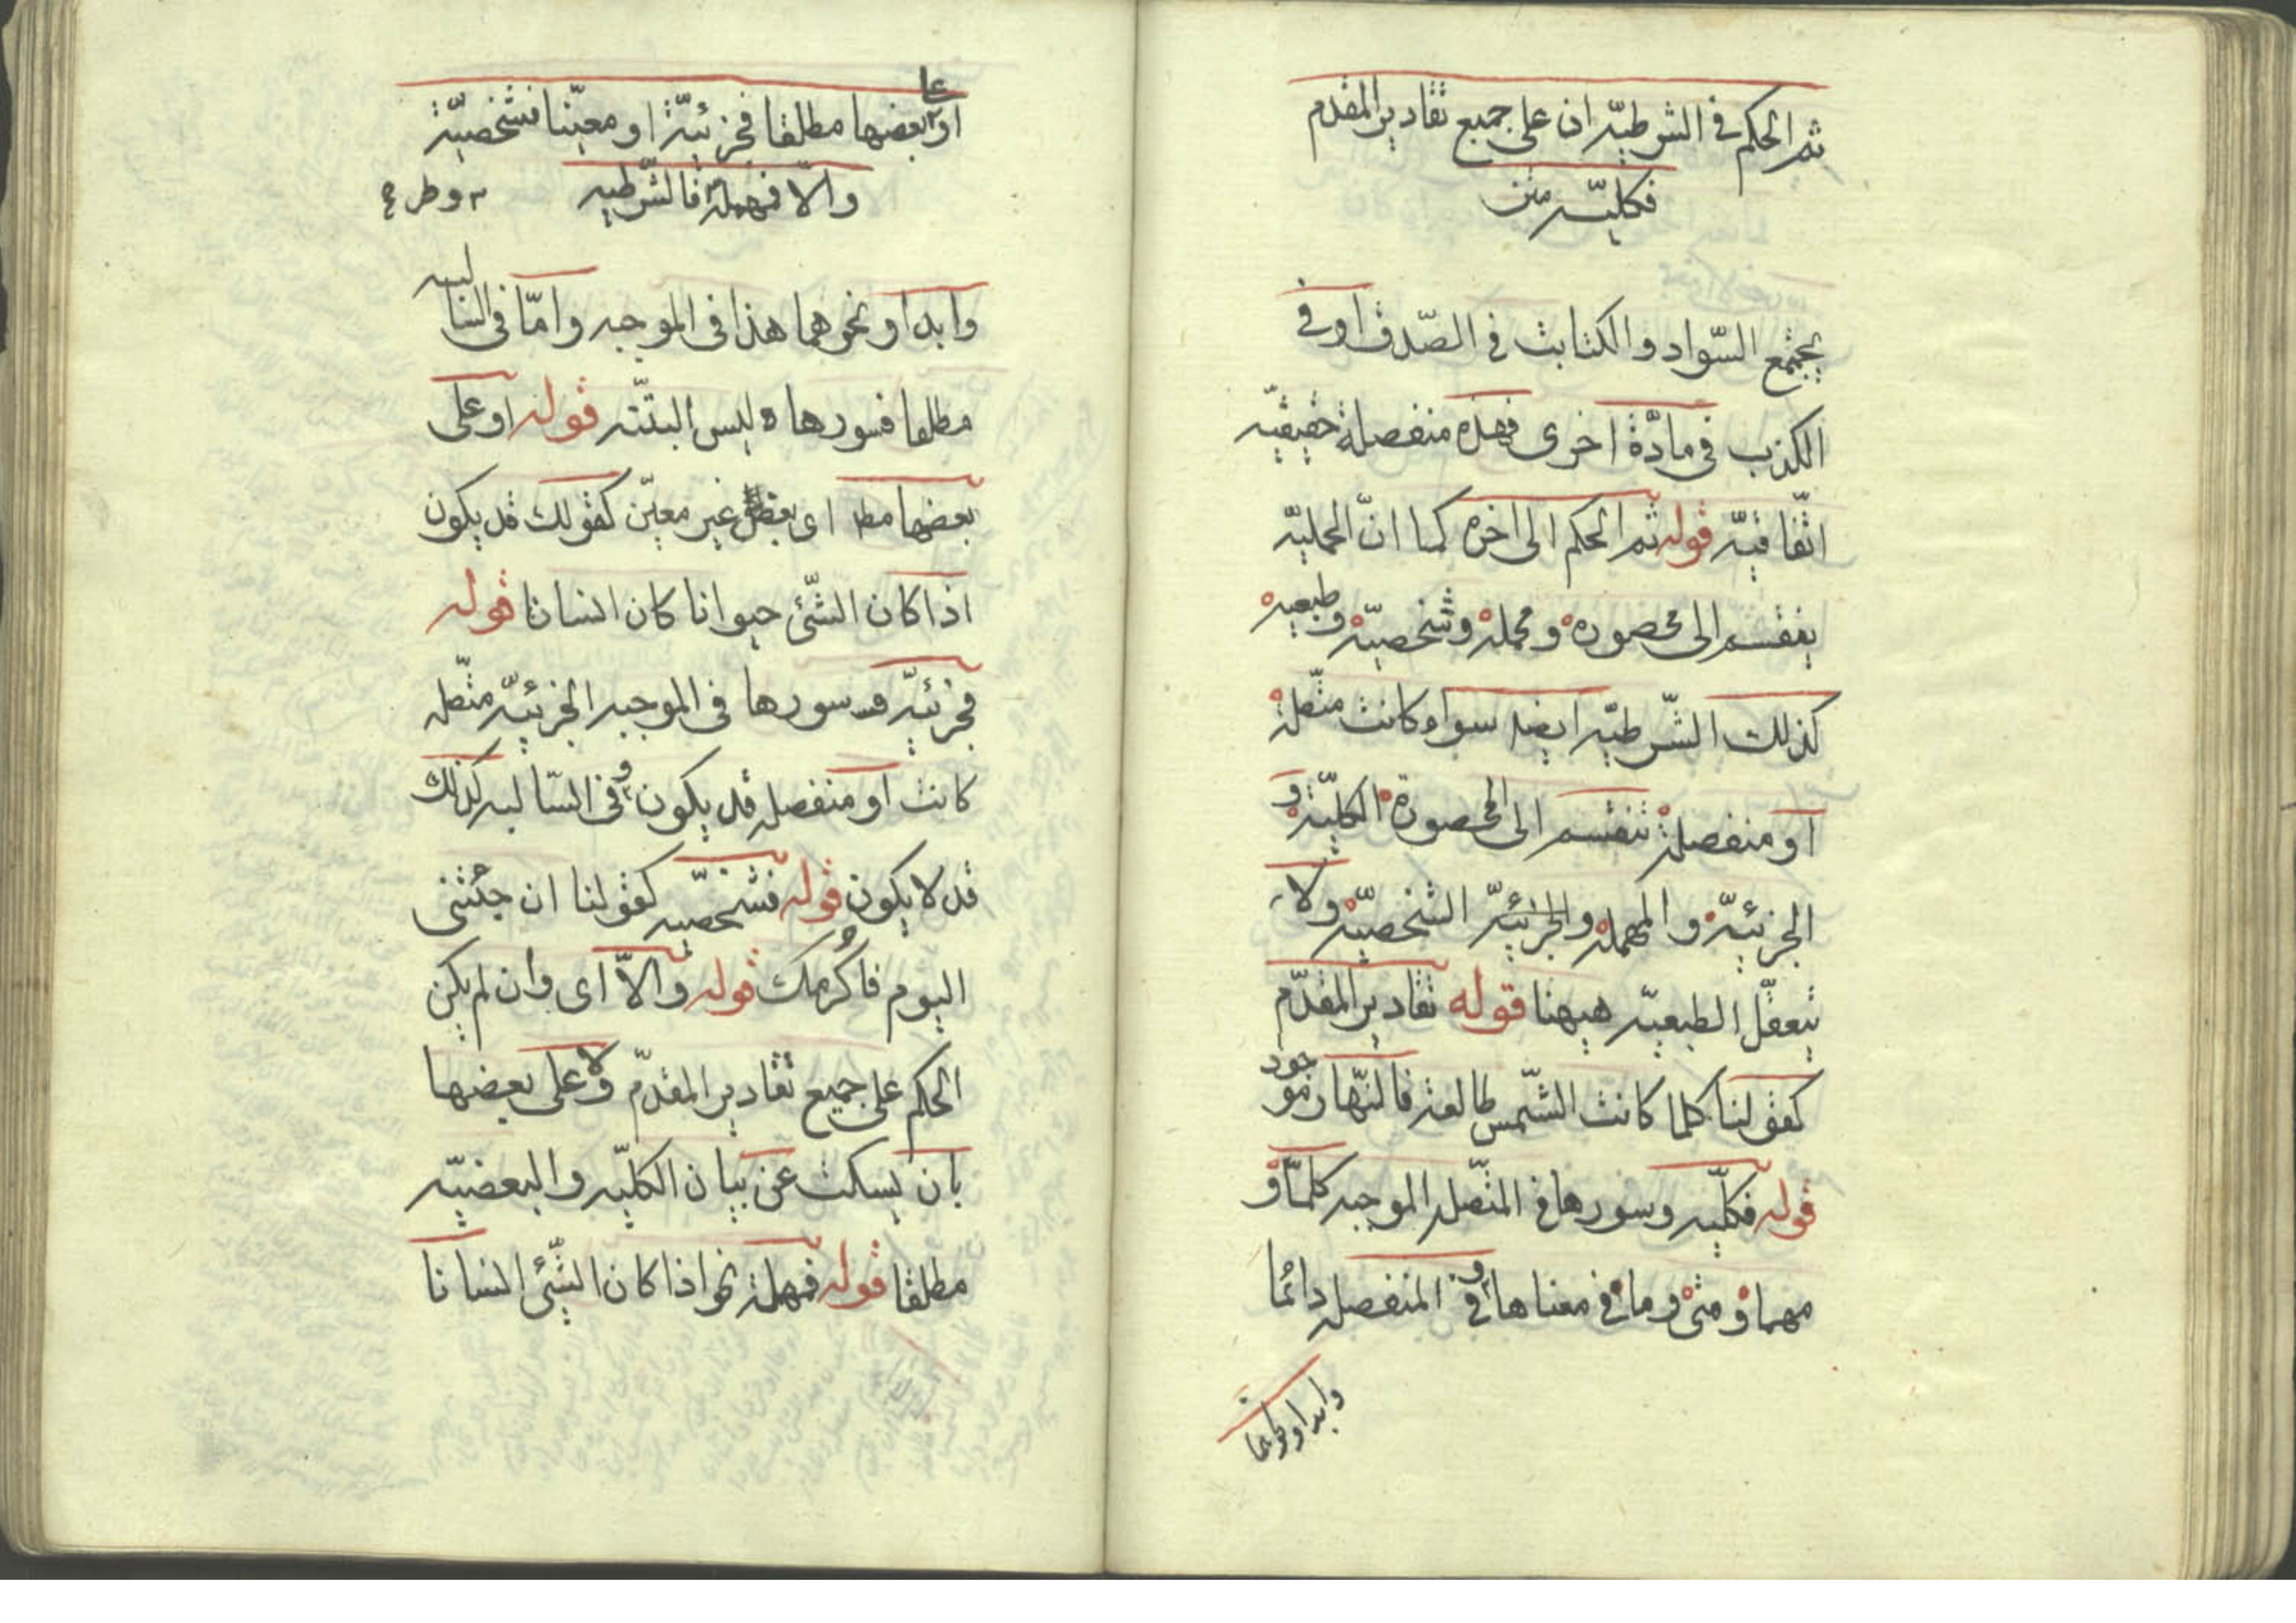 ثم الحكم في الشرطيّه ان على جميع تقادير المقدم
فكليّه متن
يجتمع السّواد والكتابت في الصّدق او في
الكذب في مادّة اخرى فهذه منفصلة حقيقيّه
اتّفاقيّه قوله ثم الحكم الى اخره كما انّ الحمليّه
ينقسم الى محصوره ومهمله وشخصيّه وطبعيه
كذلك الشّرطيّه ايضا سواء كانت متّصلة
او منفصلة تنقسم الى المحصورة الكليّة و
الجزئيّة والمهملة والجزئيّه الشخصيّة ولا
يتعقّل الطبعيّه هيهنا قوله تقادير المقدّم
كقولنا كلما كانت الشّمس طالعة فالنّهار موجود
قوله فكلّيه وسورها في المتّصلة الموجبه كلمّا و
مهما و متى و ما في معناها و في المنفصله دائما
وابدا ونحوهما
او على بعضها مطلقا فجزئيّة او معيّنا فشخصيّة
والّا فمهملة فالشّرطيه
وابدا ونحوهما هذا في الموجبه وامّا في السالبه
مطلقا فسورها ليس البتّته قوله او على
بعضها مط اى بعض غير معيّن كقولك قد يكون
اذا كان الشّئ حيوانا كان انسانا قوله
فجزئيّه وسورها في الموجبه الجزئيّه متّصله
كانت او منفصله قد يكون و في السّالبه كذلك
قد لا يكون قوله فشخصيّه كقولنا ان جئتنى
اليوم فاكُرمك قوله والّا اى وان لم يكن
الحكم على جميع تقادير المقدّم ولا على بعضها
بان يسكت عن بيان الكليّه والبعضيّه
مطلقا قوله فمهملة نحو اذا كان الشّئ انسانا